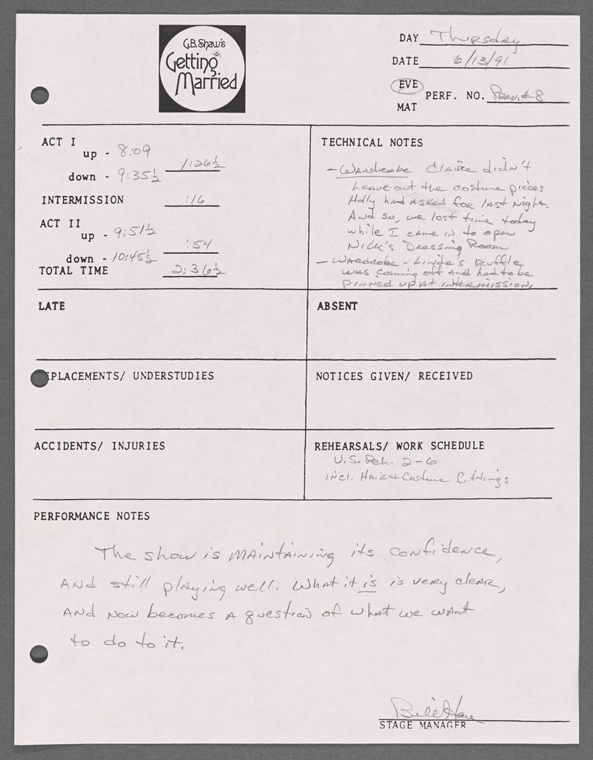 G.B. Shaw's
Getting
Married
DAY Thursday
DATE 6/13/91
EVE
MAT PERF. NO. Prev. #8
ACT I
up - 8:09
1:26½
down - 9:35½
INTERMISSION :16
ACT II
up - 9:51½
:54
down - 10:45½
TOTAL TIME 2:36½
TECHNICAL NOTES
- Wardrobe Claire didn't
leave out the costume pieces
Holly had asked for last night.
And so, we lost time today
while I came in to open
Nick's Dressing Room
- Wardrobe - Linda's Ruffle
was coming out and had to be
pinned up at intermission.
LATE
ABSENT
EPLACEMENTS/ UNDERSTUDIES
NOTICES GIVEN/ RECEIVED
ACCIDENTS/ INJURIES
REHEARSALS/ WORK SCHEDULE
U.S. Reh. 2-6
incl. Hair & Costume Fittings
PERFORMANCE NOTES
The show is maintaining its confidence,
And still playing well. What it is is very clear,
And now becomes a question of what we want
to do to it.
Bill Hare
STAGE MANAGER